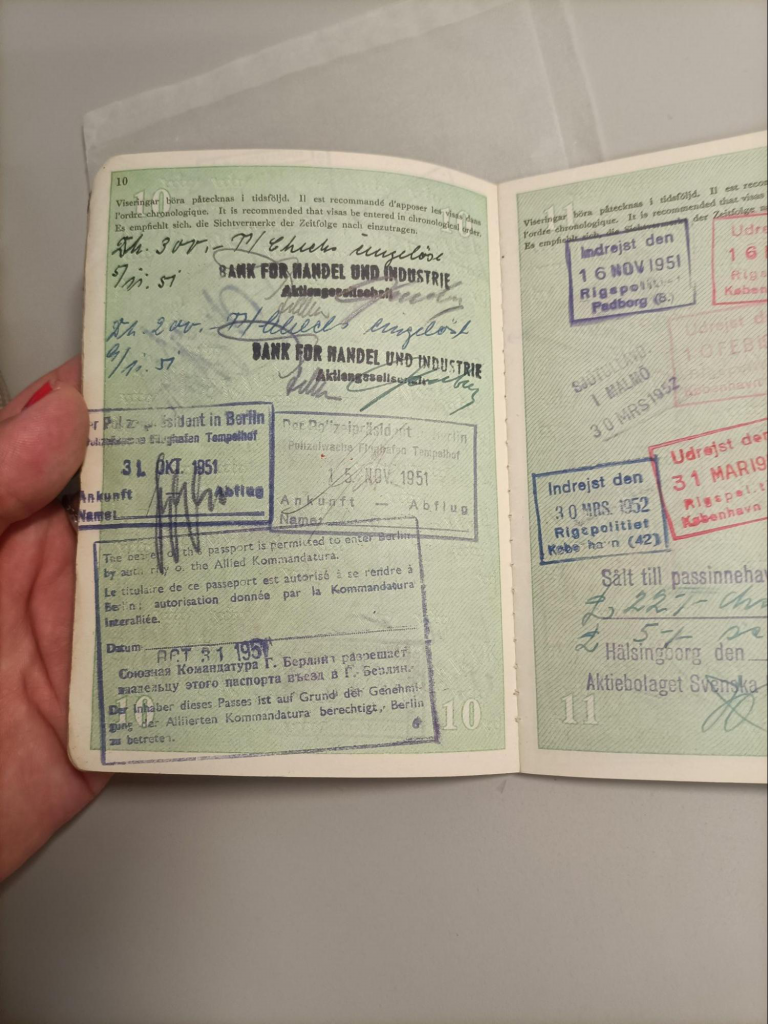 10
Viseringar böra påtecknas i tidsföljd. Il est recommandé d'apposer les visas dans
l'ordre chronologique. It is recommended that visas be entered in chronological order.
Es empfiehlt sich, die Sichtvermerke der Zeitfolge nach einzutragen.
300.- Checks eingelöst
5/11.51
BANK FÜR HANDEL UND INDUSTRIE
Aktiengesellschaft
200.- Checks eingelöst
9/11.51
BANK FÜR HANDEL UND INDUSTRIE
Aktiengesellschaft
er Polizeipräsident in Berlin
Polizeiwache Flughafen Tempelhof
31. OKT. 1951
Ankunft Abflug
Name:
Der Polizeipräsident Berlin
Polizeiwache Flughafen Tempelhof
15. NOV. 1951
Ankunft — Abflug
Name:
The bearer of this passport is permitted to enter Berlin
by authority of the Allied Kommandatura.
Le titulaire de ce passeport est autorisé à se rendre à
Berlin; autorisation donnée par la Kommandatura
Interalliée.
Datum OCT 31 1951
Союзная Командатура Г. Берлина разрешает
владельцу этого паспорта въезд в Г. Берлин.
Der Inhaber dieses Passes ist auf Grund der Genehmi-
gung der Alliierten Kommandatura berechtigt, Berlin
zu betreten.
10 10
11
Viseringar böra påtecknas i tidsföljd. Il est
l'ordre chronologique. It is recommended that visas
Es empfiehlt sich, die Sichtvermerke der Zeitfolge
Indrejst den
16 NOV 1951
Rigspolitiet
Padborg (B.)
Udre
16
Rigs
Køben
I MALMÖ
30 MRS 1952
Indrejst den
30 MRS. 1952
Rigspolitiet
København (42)
Udrejst den
31 MAR 19
Rigspolit
København
Sålt till passinnehav
£ 22-/-
£ 5-/-
Hälsingborg den
Aktiebolaget Svenska
11